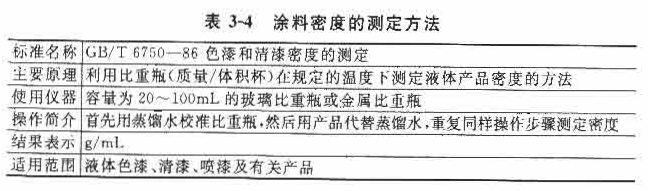 表 3-4 涂料密度的测定方法
标准名称 GB/T 6750—86 色漆和清漆密度的测定
主要原理 利用比重瓶(质量/体积杯)在规定的温度下测定液体产品密度的方法
使用仪器 容量为 20～100mL 的玻璃比重瓶或金属比重瓶
操作简介 首先用蒸馏水校准比重瓶,然后用产品代替蒸馏水,重复同样操作步骤测定密度
结果表示 g/mL
适用范围 液体色漆、清漆、喷漆及有关产品